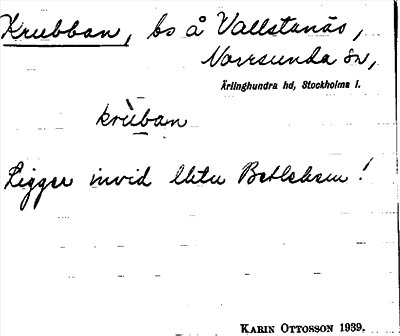 Krubban, bs å Vallstanäs,
Norrsunda sn,
Ärlinghundra hd, Stockholms l.
krùban
Ligger invid lhtu Betlehem!
KARIN OTTOSSON 1939.